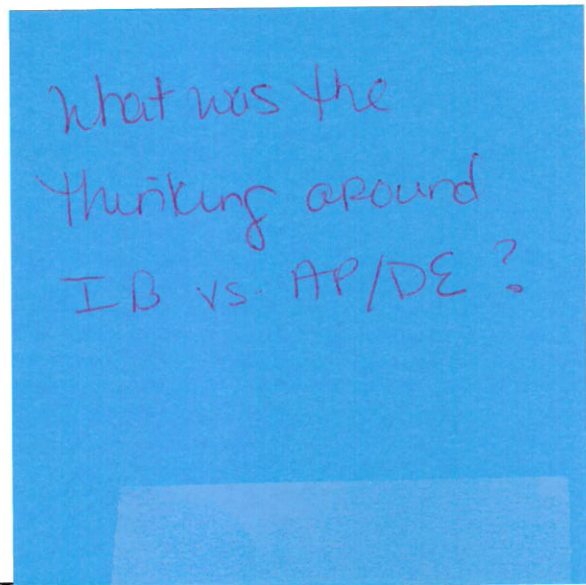 What was the
thinking around
IB vs. AP/DE?